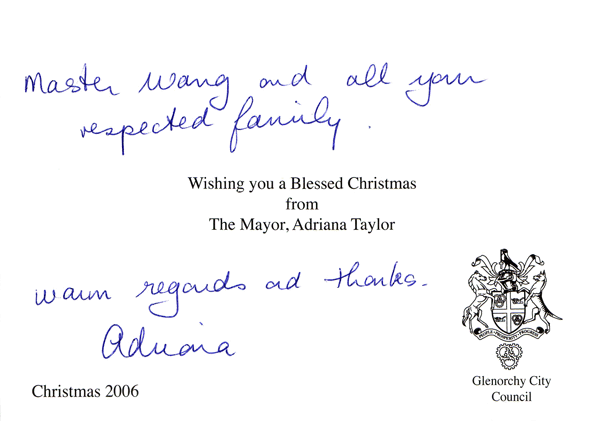 Master Wang and all your
respected family.
Wishing you a Blessed Christmas
from
The Mayor, Adriana Taylor
Warm regards and thanks.
Adriana
Christmas 2006
Glenorchy City
Council